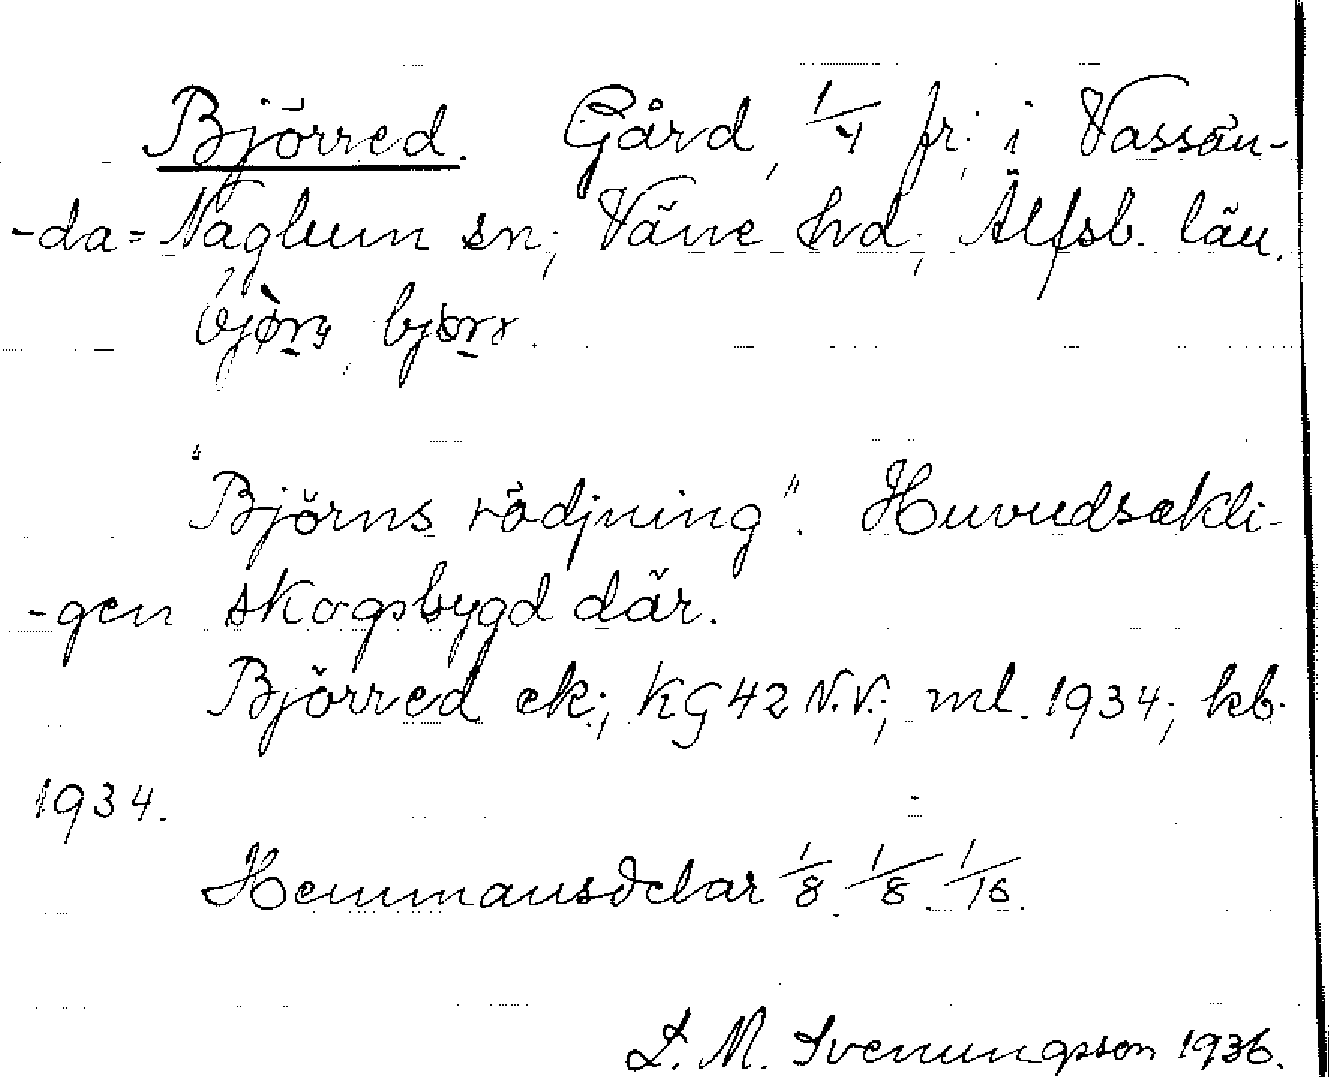 Björred. Gård, 1/4 fr: i Vassän-
-da=Naglum sn; Väne hd; Älfsb. län.
bjòrꝛ, bjorr.
"Björns rödjning". Huvudsakli-
-gen skogsbygd där.
Björred ek; KG42 N.V.; ml. 1934; kb.
1934.
Hemmansdelar 1/8 1/8 1/16.
L. M. Svenungsson 1936.